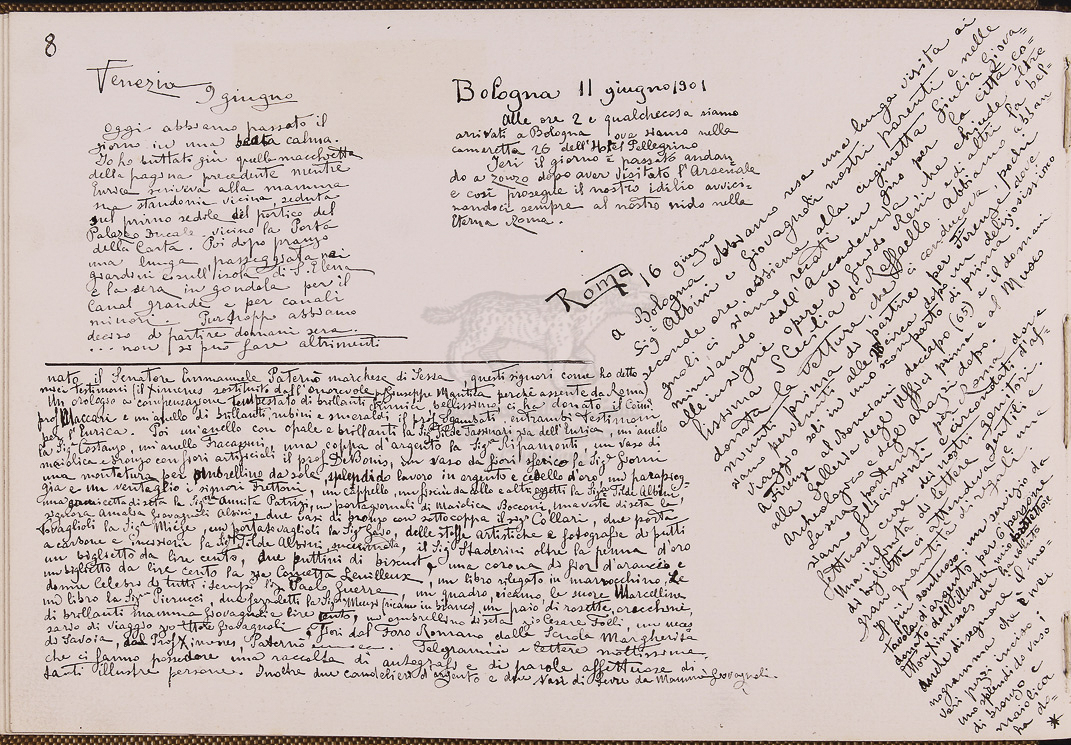 8
Venezia
9 giugno
Oggi abbiamo passato il
giorno in una beata calma.
Io ho buttato giù quella macchietta
della pagina precedente mentre
Enrica scriveva alla mamma
sua standomi vicina, seduta
sul primo sedile del portico del
Palazzo Ducale vicino la Porta
della Carta. Poi dopo pranzo
una lunga passeggiata nei
giardini e sull'isola di S. Elena
e la sera in gondola per il
Canal grande e per canali
minori. Purtroppo abbiamo
deciso di partire domani sera.
... non si può fare altrimenti
Bologna 11 giugno 1901
Alle ore 2 e qualchecosa siamo
arrivati a Bologna ove siamo nella
cameretta 26 dell'Hotel Pellegrino
Ieri il giorno è passato andan
do a zonzo dopo aver visitato l'Arsenale
e così prosegue il nostro idilio avvici=
nandoci sempre al nostro nido nella
Eterna Roma.
Roma 16 giugno
a Bologna abbiamo resa una lunga visita ai
Sigi Albini e Giovagnoli nostri parenti e nelle
seconde ore, assieme alla cuginetta Giulia Giova=
gnoli ci siamo recati in giro per la città, co=
minciando dall'Accademia che chiude, oltre
alle insigni opere di Guido Reni e di altri, la bel=
lissima S. Cecilia di Raffaello. Abbiamo abban
donata la vettura, che ci conduceva, pochi
minuti prima di partire per Firenze, dove
siam pervenuti alle dopo un deliziosissimo
viaggio soli in uno scomparto di prima.
A Firenze di nuovo daccapo (65) e il domani
alla Galleria degli Uffizi prima e al Museo
Archeologico e degli arazzi, dopo.
La sera siamo partiti per Roma dove
siamo felicissimi e circondati d'af=
fettuose cure dei nostri genitori.
Una infinità di lettere gentili e
di biglietti ci attendeva e una
gran quantità di regali.
Il più sontuoso, un servizio da
tavola d'argento per 6 persone
donato dall'illustre mio
Ettore Ximenes che ha voluto
anche disegnare il mo=
nogramma che è nei
vari pezzi inciso;
uno splendido vaso
di bronzo e
maiolica
ha do= *
nato il Senatore Emmanuele Paternò marchese di Sessa, questi signori come ho detto
miei testimoni (il Ximenes sostituito dall'onorevole Giuseppe Mantica perchè assente da Roma)
Un orologio a compensazione tempestato di brillanti
prof. Maccari e un anello di brillanti, rubini e smeraldi il prof. Gambati, entrambi testimoni
per l'Enrica. Poi un anello con opale e brillanti la Siga Tilde Tassinari zia dell'Enrica, un anello
la Sig. Costanza, un anello Fracassini, una coppa d'argento la Siga un vaso di
maiolica e bronzo con fiori artificiali il prof. De Bonis, un vaso da fiori sferico la Siga Giorni
una montatura per ombrellino da sole, splendido lavoro in argento e cesello d'oro, un parapiog=
gia e un ventaglio i signori un cappello, un e altri oggetti la Siga Tilde Albini
signora Amalia Giovagnoli Albini, due vasi di bronzo con sottocoppa il sigr Collari, due porta
tovaglioli la Siga Miele, un portatovaglioli la Siga Gajo, delle stoffe artistiche e fotografie di putti
a carbone e incisione la Siga Tilde Albini succennata, il Sigr Staderini oltre la penna d'oro
un biglietto da lire cento, due puttini di biscuit, una corona di fior d'arancio e
un biglietto da lire cento la zia Concetta un libro rilegato in marocchino, Le
donne celebri di tutti i tempi l'ing. Paolo Guerra, un quadro, ricamo, le suore Marcelline
un libro la Siga Pierucci, due un paio di rosette, orecchini,
di brillanti mamma Giovagnoli e lire cento, un'ombrellino di seta zio Cesare
sario di viaggio zio Ettore Giovagnoli, fiori dal Foro Romano dalla Scuola Margherita
di Savoia, dai Proff. Ximenes, Paternò Telegrammi e lettere moltissime
che ci fanno possedere una raccolta di autografi e di parole affettuose di
tanti illustre persone. Inoltre due candelieri d'argento e due vasi di da Mamma Giovagnoli.